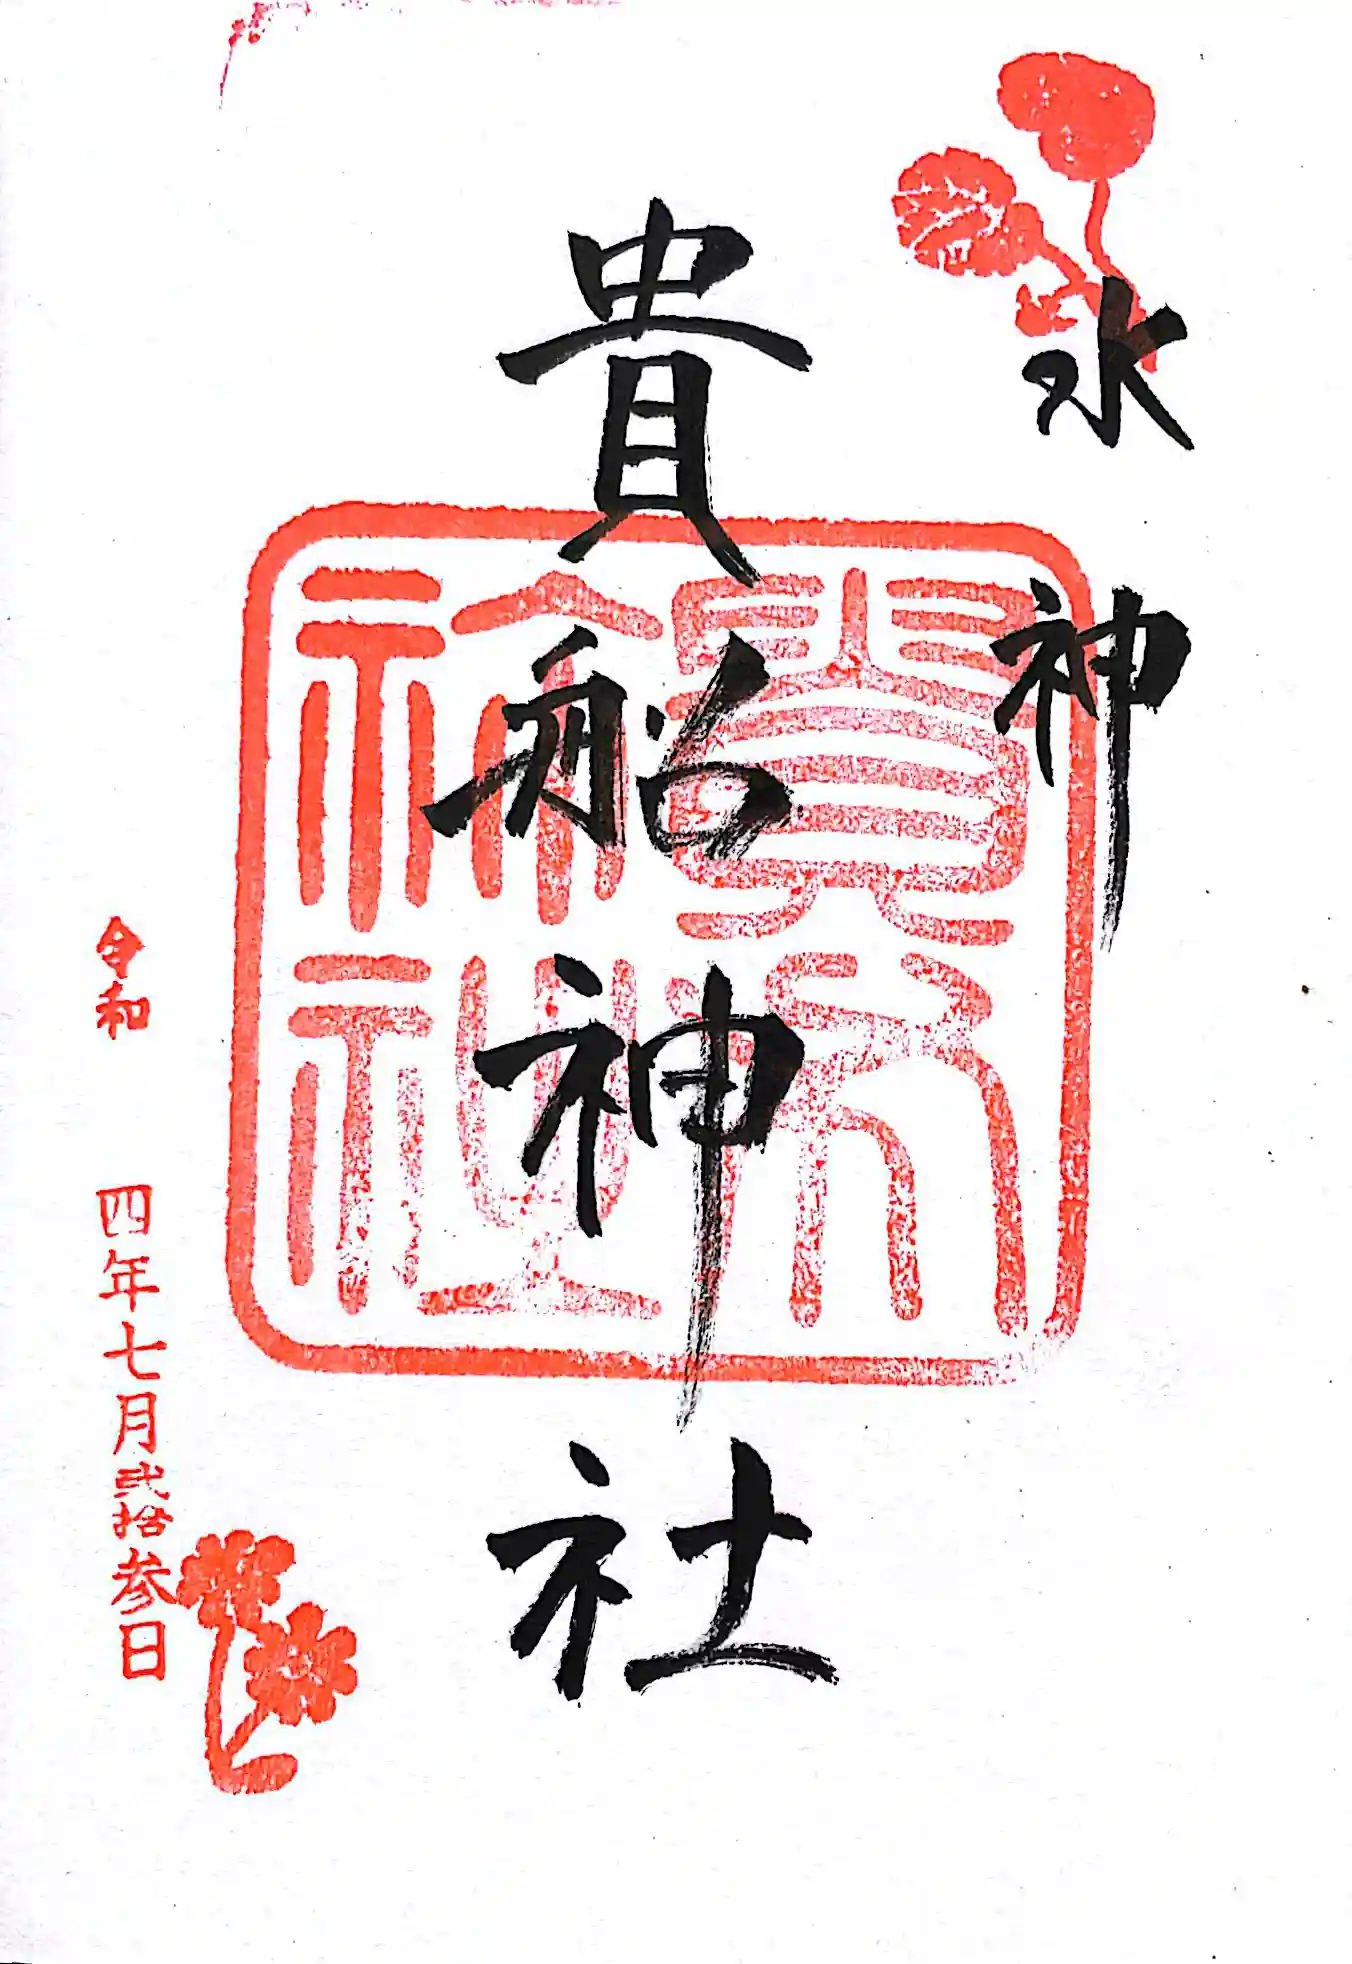 水神
貴船神社
貴船神社
令和 四年七月弐拾参日